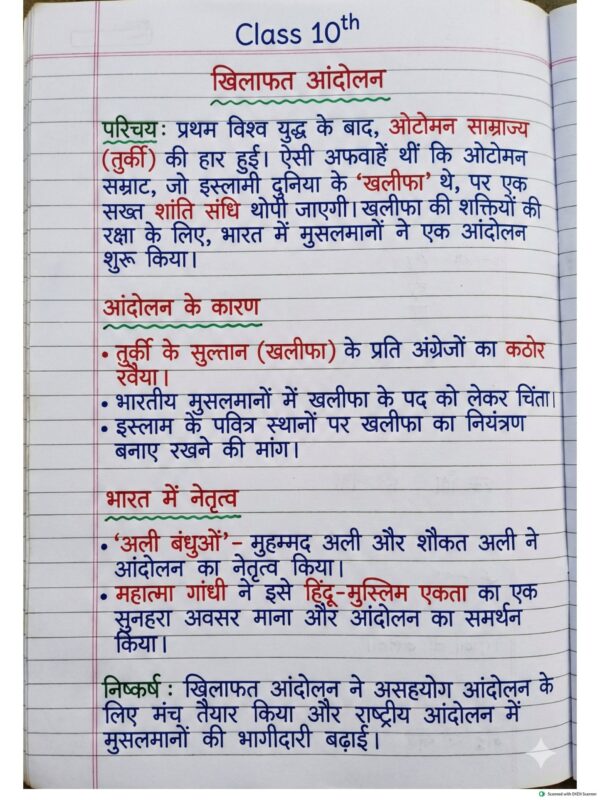 Class 10th
खिलाफत आंदोलन
परिचय : प्रथम विश्व युद्ध के बाद, ओटोमन साम्राज्य
(तुर्की) की हार हुई। ऐसी अफवाहें थीं कि ओटोमन
सम्राट, जो इस्लामी दुनिया के ‘खलीफा’ थे, पर एक
सख्त शांति संधि थोपी जाएगी। खलीफा की शक्तियों की
रक्षा के लिए, भारत में मुसलमानों ने एक आंदोलन
शुरू किया।
आंदोलन के कारण
• तुर्की के सुल्तान (खलीफा) के प्रति अंग्रेजों का कठोर
रवैया।
• भारतीय मुसलमानों में खलीफा के पद को लेकर चिंता।
• इस्लाम के पवित्र स्थानों पर खलीफा का नियंत्रण
बनाए रखने की मांग।
भारत में नेतृत्व
• ‘अली बंधुओं’ – मुहम्मद अली और शौकत अली ने
आंदोलन का नेतृत्व किया।
• महात्मा गांधी ने इसे हिंदू-मुस्लिम एकता का एक
सुनहरा अवसर माना और आंदोलन का समर्थन
किया।
निष्कर्ष : खिलाफत आंदोलन ने असहयोग आंदोलन के
लिए मंच तैयार किया और राष्ट्रीय आंदोलन में
मुसलमानों की भागीदारी बढ़ाई।
Scanned with OKEN Scanner